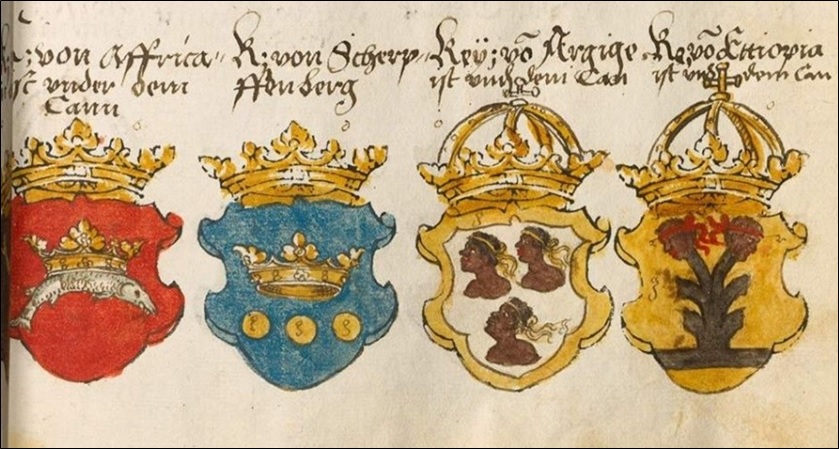 R: von Affrica
ist vnder dem
Cann
R: von Scherp
ffenberg
Reÿ: vō Argige
ist vnd dem Can
Re: vō Ettiopia
ist vnd dem Can